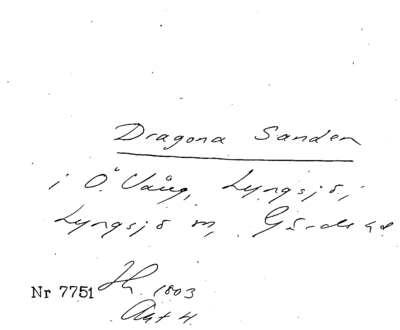 Dragona Sanden
i Ö. Vång, Lyngsjö,
Lyngsjö sn, Gärds hd
Nr 7751 Jh. 1803
Akt 4.